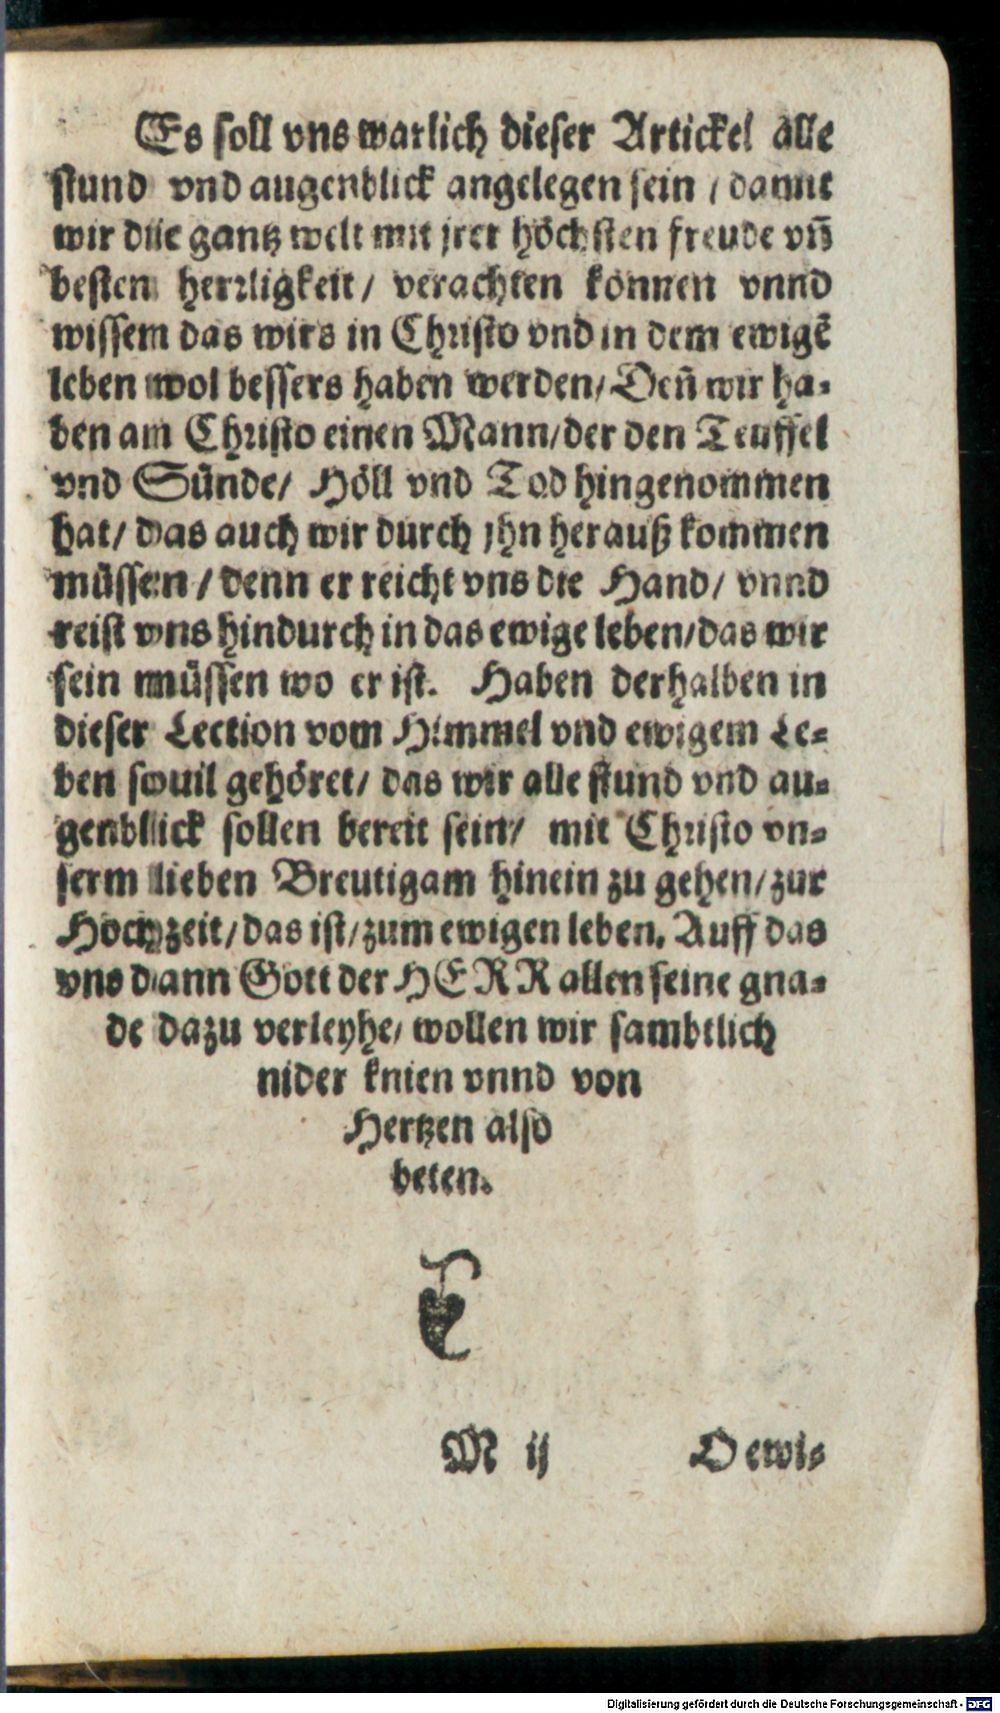 Es soll vns warlich dieser Artickel alle
stund vnd augenblick angelegen sein / damit
wir die gantz welt mit jrer höchsten freude vñ
besten herrligkeit / verachten können vnnd
wissem das wirs in Christo vnd in dem ewigẽ
leben wol bessers haben werden / Deñ wir ha-
ben am Christo einen Mann / der den Teuffel
vnd Sünde / Höll vnd Tod hingenommen
hat / das auch wir durch jhn herauß kommen
müssen / denn er reicht vns die Hand / vnnd
reist vns hindurch in das ewige leben / das wir
sein müssen wo er ist. Haben derhalben in
dieser Lection vom Himmel vnd ewigem Le-
ben souil gehöret / das wir alle stund vnd au-
genblick sollen bereit sein / mit Christo vn-
serm lieben Breutigam hinein zu gehen / zur
Hochzeit / das ist / zum ewigen leben. Auff das
vns dann Gott der HERR allen seine gna-
de dazu verleyhe / wollen wir sambtlich
nider knien vnnd von
Hertzen also
beten.
M ij O ewi-
Digitalisierung gefördert durch die Deutsche Forschungsgemeinschaft - DFG